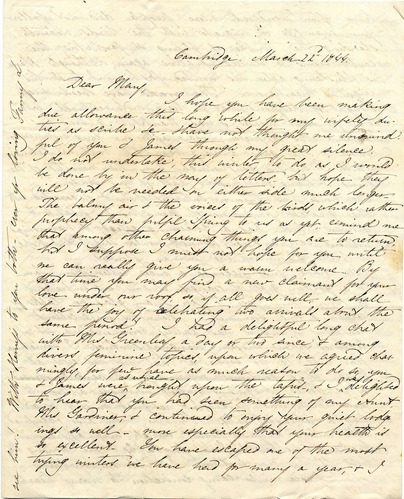 Cambridge. March 22d 1844.
Dear Mary,
I hope you have been making
due allowance this long while for my wifely du-
ties as scribe &c - & have not thought me unmind-
ful of you & James through my great silence.
I do not undertake this winter to do as I would
be done by in the way of letters, but hope they
will not be needed on either side much longer.
The balmy air & the voices of the birds which rather
prophecy than fulfil Spring to us as yet remind me
that among other charming things you are to return
but I suppose I must not hope for you until
we can really give you a warm welcome. By
that time you may find a new claimant for your
love under our roof, so, if all goes well, we shall
have the joy of celebrating two arrivals about the
same period! I had a delightful long chat
with Mrs Greenleaf a day or two since & among
divers feminine topics, upon which we agreed char-
mingly, for few have as much reason to do so, you
& James were, as usual, brought upon the tapis, & I delighted
to hear that you had seen something of my Aunt
Mrs Gardiner, & continued to enjoy your quiet lodg-
ings so well - more especially that your health is
so excellent. You have escaped one of the most
trying winters we have had for many a year, & I
see him! With Henry's to you both - ever yr loving Fanny L.